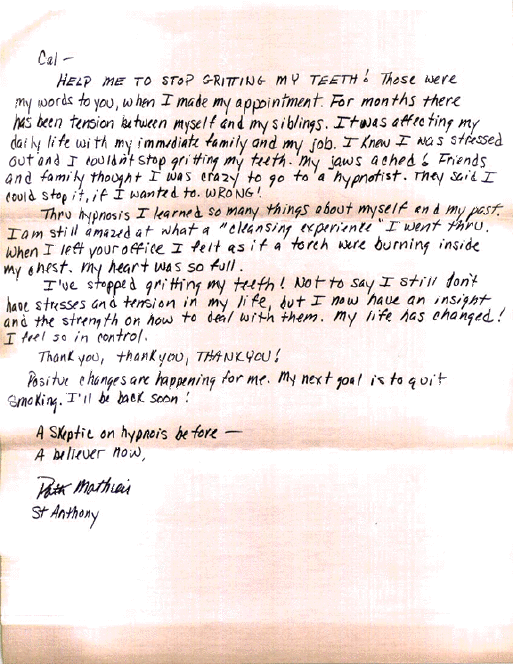 Cal -
HELP ME TO STOP GRITTING MY TEETH! Those were
my words to you, when I made my appointment. For months there
has been tension between myself and my siblings. It was affecting my
daily life with my immediate family and my job. I knew I was stressed
out and I couldn't stop gritting my teeth. My jaws ached! Friends
and family thought I was crazy to go to a hypnotist. They said I
could stop it, if I wanted to. WRONG!
Thru hypnosis I learned so many things about myself and my past.
I am still amazed at what a "cleansing experience" I went thru.
When I left your office I felt as if a torch were burning inside
my chest. My heart was so full.
I've stopped gritting my teeth! Not to say I still don't
have stresses and tension in my life, but I now have an insight
and the strength on how to deal with them. My life has changed!
I feel so in control.
Thank you, thank you, THANK YOU!
Positive changes are happening for me. My next goal is to quit
smoking. I'll be back soon!
A Skeptic on hypnosis before -
A believer now,
Mathieis
St Anthony